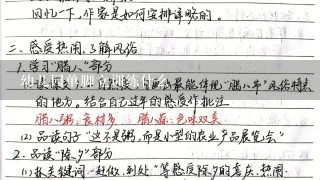 回忆一下,作家是如何安排详略的。
二、感受热闹,了解风俗
1.学习“腊八”部分
最能体现“腊八节”风俗特点
的地方。结合自己过年的感受作批注
腊八粥:食材多 腊八蒜:色味双美
(2)品读句子“这不是粥,而是小型的农业产品展览会”
2.品读“除夕”部分
(1)抓关键词“赶做、到处”等感受除夕的喜庆、热闹